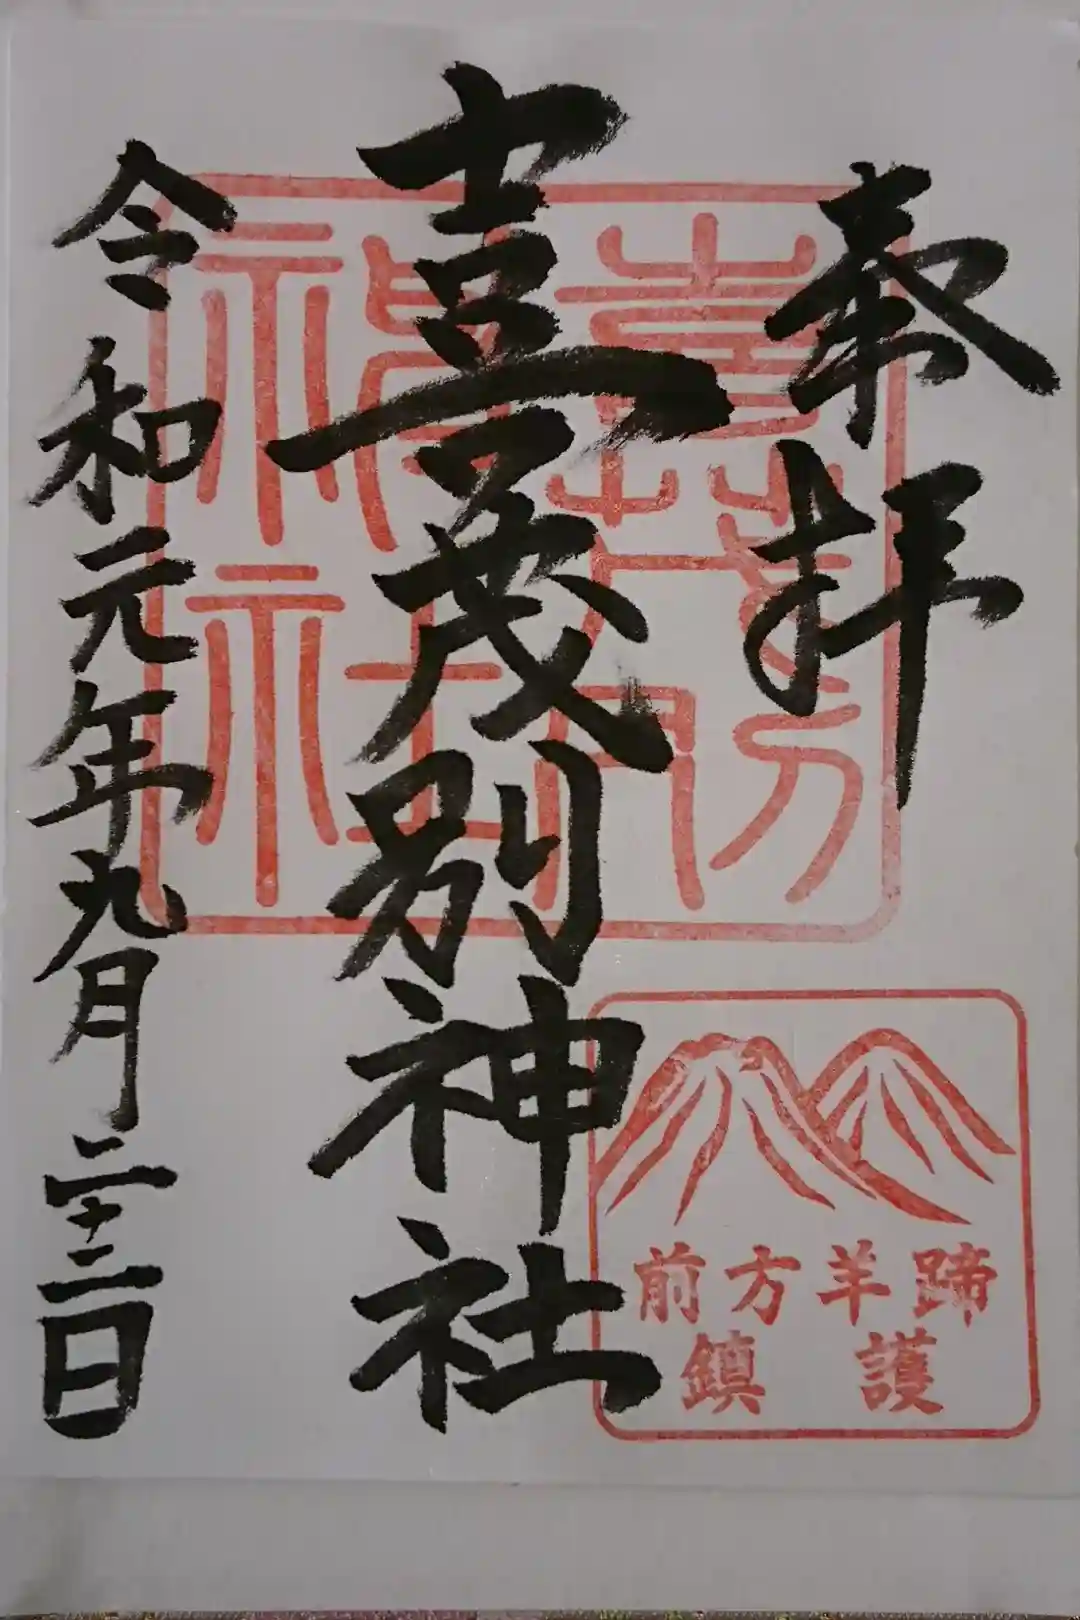 奉拝
喜茂別神社
令和元年九月二十二日
喜茂別
神社
蹄羊方前
護鎮